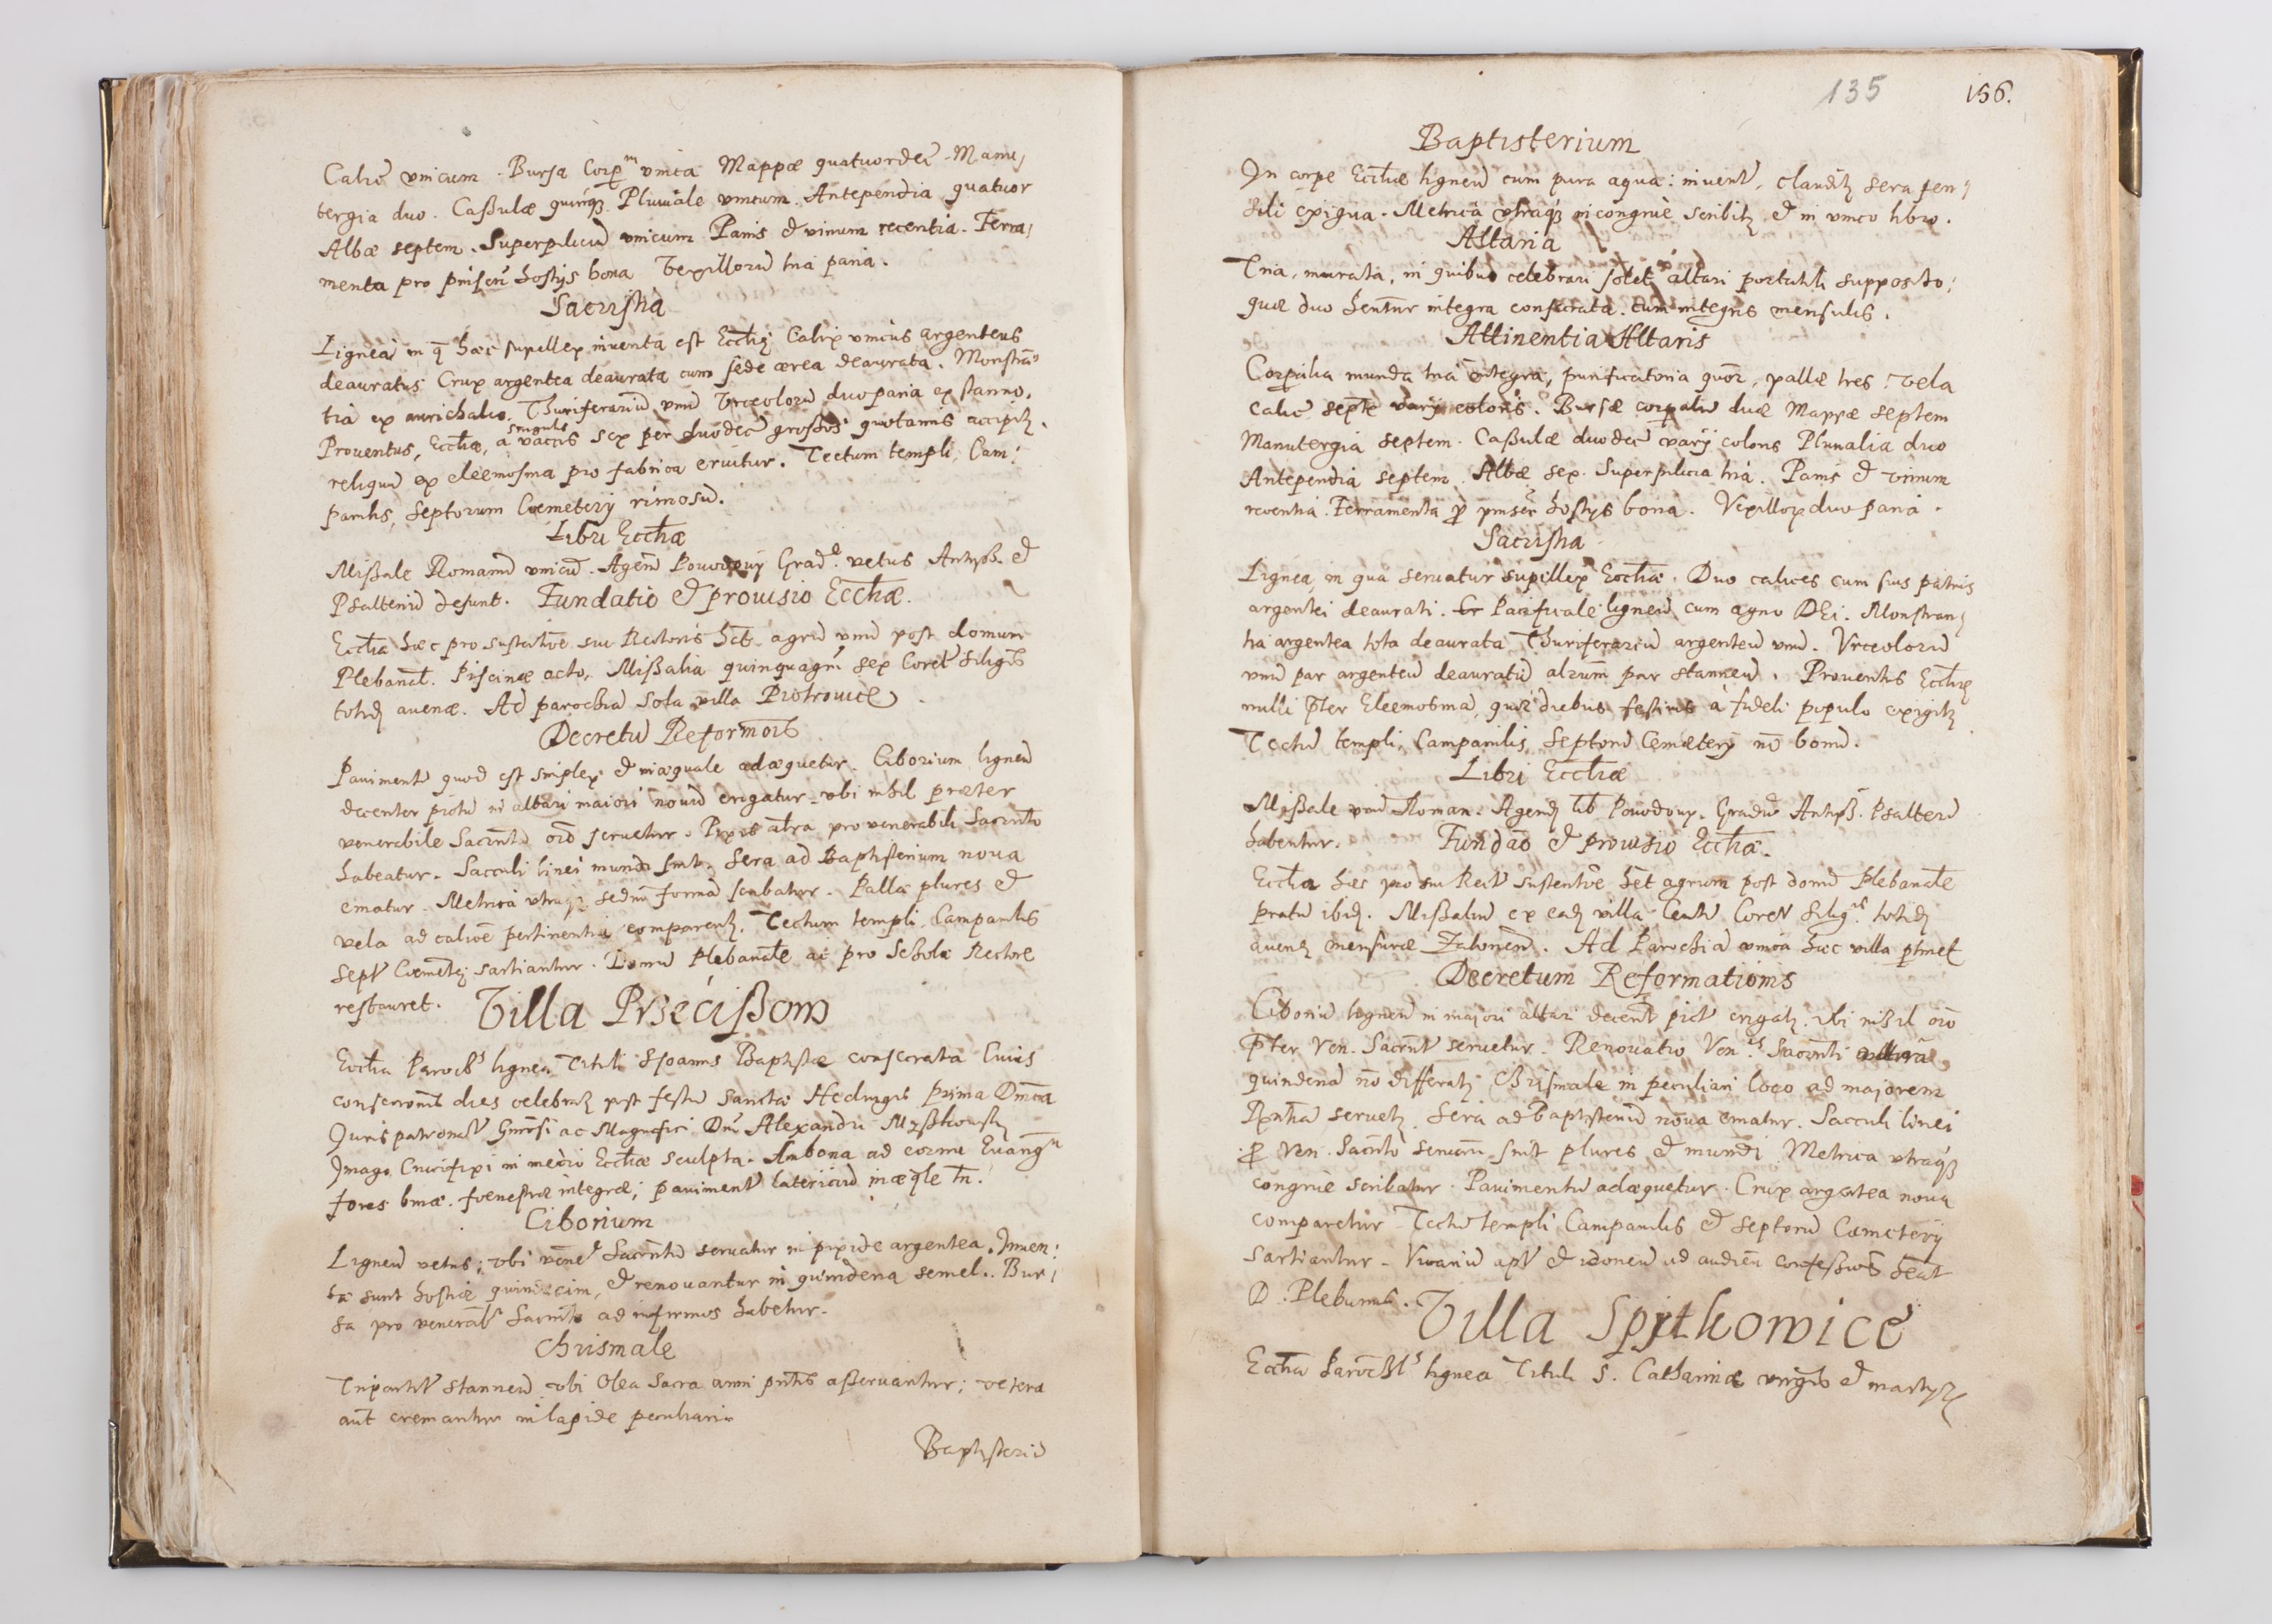 Calic̃ vnicum. Bursa Corp̃ᵐ vnica Mappæ quatuordec̃. Manu,
tergia duo. Caßulæ quinqꝫ. Pluuiale vnicum. Antependia quatuor
Albæ septem. Superpiliciũ vnicum Panis & vinum recentia. Ferra,
menta pro hostijs bona Vexillorũ tria paria.
Sacristia
Lignea in q̃ hæc supellex inuenta est Ecctiæ Calix vnicus argenteus
deauratus Crux argentea deaurata cum sede ærea deaurata. Monstrã,
tia ex aurichalco. Thuriferariũ vnũ Vrceolorũ duo paria ex stanno.
Prouentus, Ecctiæ, a singulis vaccis sex per duodec̃ großos quotannis accipitꝫ.
reliquũ ex eleemosina pro fabrica eruitur. Tectum templi, Cam:
panilis, septorum Cœmeterij rimosũ.
Libri Ecctiæ
Mißale Romanũ vnicũ. Agend̃ Powodouij Grad.ᵉ vetus Antiph. &
Psalteriũ desunt. Fundatio & prouisio Ecctiæ.
Ecctia hæc pro sustentõe sui Rectoris h̃et agrũ vnũ post domum
Plebanal̃. Piscinæ octo. Mißalia quinquagin̂ sex Coret̃ siliginis
totidꝫ auenæ. Ad parochiã sola villa Piotrowice.
Decretũ Reformõis
Pauimentũ quod est simplex & inæquale adæquetur. Ciborium ligneũ
decenter pictũ in altari maiori nouũ erigatur vbi nihil præter
venerabile Sacrm̃tũ oĩo seruetur. Pixis alt̃ra pro venerabili Sacrm̃to
habeatur. Sacculi linei mundi sint. Sera ad Baptisterium noua
ematur. Metrica vtraqꝫ sedm̃ formã scribatur. Palla plures &
vela ad calic̃e pertinentia comparentꝫ. Tectum templi Campanilis
Sept̃ Cœmetꝫ sartiantur. Domũ Plebanal̃e ac pro Scholæ Rectore
restauret. Villa Przecißow
Ecctia Paroch̃ˢ lignea Tituli S Joannis Baptistæ consecrata Cuius
consecrõnis dies celebratꝫ post festũ Sanctæ Hedwigis prima Dnĩca
Juris patronat̃ Gñosi ac Magnifici Dnĩ Alexandri Myßkowski
Imago Crucifixi in medio Ecctiæ sculpta. Ambona ad cornu Euang̃ᵘ
fores bonæ. fœnestræ integræ, pauiment̃ latericiũ inæq̃le tñ.
Ciborium
Ligneũ vetus; vbi vener̃ Sacrm̃tũ seruatur in pixide argentea. Inuen:
tæ sunt hostiæ quindecim, & renouantur in quindena semel. Bur,
sa pro venerab̃ Sacrm̃to ad infirmos habetur.
Chrismale
Tripartit̃ stanneũ vbi Olea Sacra anni pñtis aßeruantur; vetera
aũt cremantur in lapide peculiari
Baptisteriũ
135 156.
Baptisterium
In corpe Ecctiæ ligneũ cum pura aqua: inuent̃, clauditꝫ sera fen,
sili exigua. Metrica vtraqꝫ incongruè scribitꝫ & in vnico libro.
Altaria
Tria, murata, in quibus celebrari solet altari portatili supposito;
quæ duo hentur integra consecrata cum integris mensulis.
Attinentia Altaris
Corp̃alia munda tria integra, purificatoria quor̃, pallæ tres. Vela
calic̃ septẽ varij coloris. Bursæ corp̃aliũ duæ Mappæ septem
Manutergia septem. Caßulæ duodec̃ varij coloris Pluuialia duo
Antependia septem. Albæ sex. Superpilicia tria. Panis & Vinum
recentia. Ferramenta ꝓ hostijs bona. Vexillorꝫ duo paria.
Sacristia
Lignea, in qua seruatur supellex Ecctiæ. Duo calices cum suis patenis
argentei deaurati. Pacificale ligneũ cum agno DEi. Monstran,
tia argentea tota deaurata Thuriferariũ argenteũ vnũ. Vrceolorũ
vnũ par argenteũ deauratũ alterũm par stanneũ. Prouentus Ecctiæ
nulli p̃ter Eleemosinã, quæ diebus festiuis à fideli populo exigitꝫ
Tectũ templi, Campanilis, Septorũ Cemeterij nõ bonũ.
Libri Ecctiæ
Mißale vnũ Roman. Agendꝫ lib̃ Powodouij. Graduᵉ Antiph̃. Psalteriũ
habentur. Fundaõ & prouisio Ecctiæ.
Ecctia hæc pro sui Rect̃ sustentõe h̃et agrum post domũ Plebanal̃e
pratũ ibidꝫ. Mißaliũ ex eadꝫ villa Centũ Coret̃ Siligⁱˢ totidꝫ
auenꝫ mensuræ Zatorien̂. Ad Parochiã vnica hæc villa p̃tinet
Decretum Reformationis
Ciboriũ ligneũ in majori altari decent̃ pict̃ erigatꝫ. vbi nihil oĩo
p̃ter Ven. Sacrm̃t̃ seruetur. Renouatio Ven.ⁱˢ Sacrm̃ti vltra
quindenã nõ differatꝫ Chrismale in peculiari loco ad majorem
Rṽntiã seruetꝫ. Sera ad Baptisteriũ noua ematur. Sacculi linei
ꝓ Ven. Sacrm̃to sint plures & mundi. Metrica vtraqꝫ
congruè scribatur. Pauimentũ adæquetur. Crux argẽtea noua
comparetur Tectũ templi Campanilis & septorũ Cæmeterij
sartiantur. Vicariũ apt̃ & idoneũ ad audiẽn confeßiones h̃eat
D. Plebanus. Villa Spytkowice
Ecctia Paroch̃lˢ lignea Tituli S. Catharinæ virginis & martyrꝫ